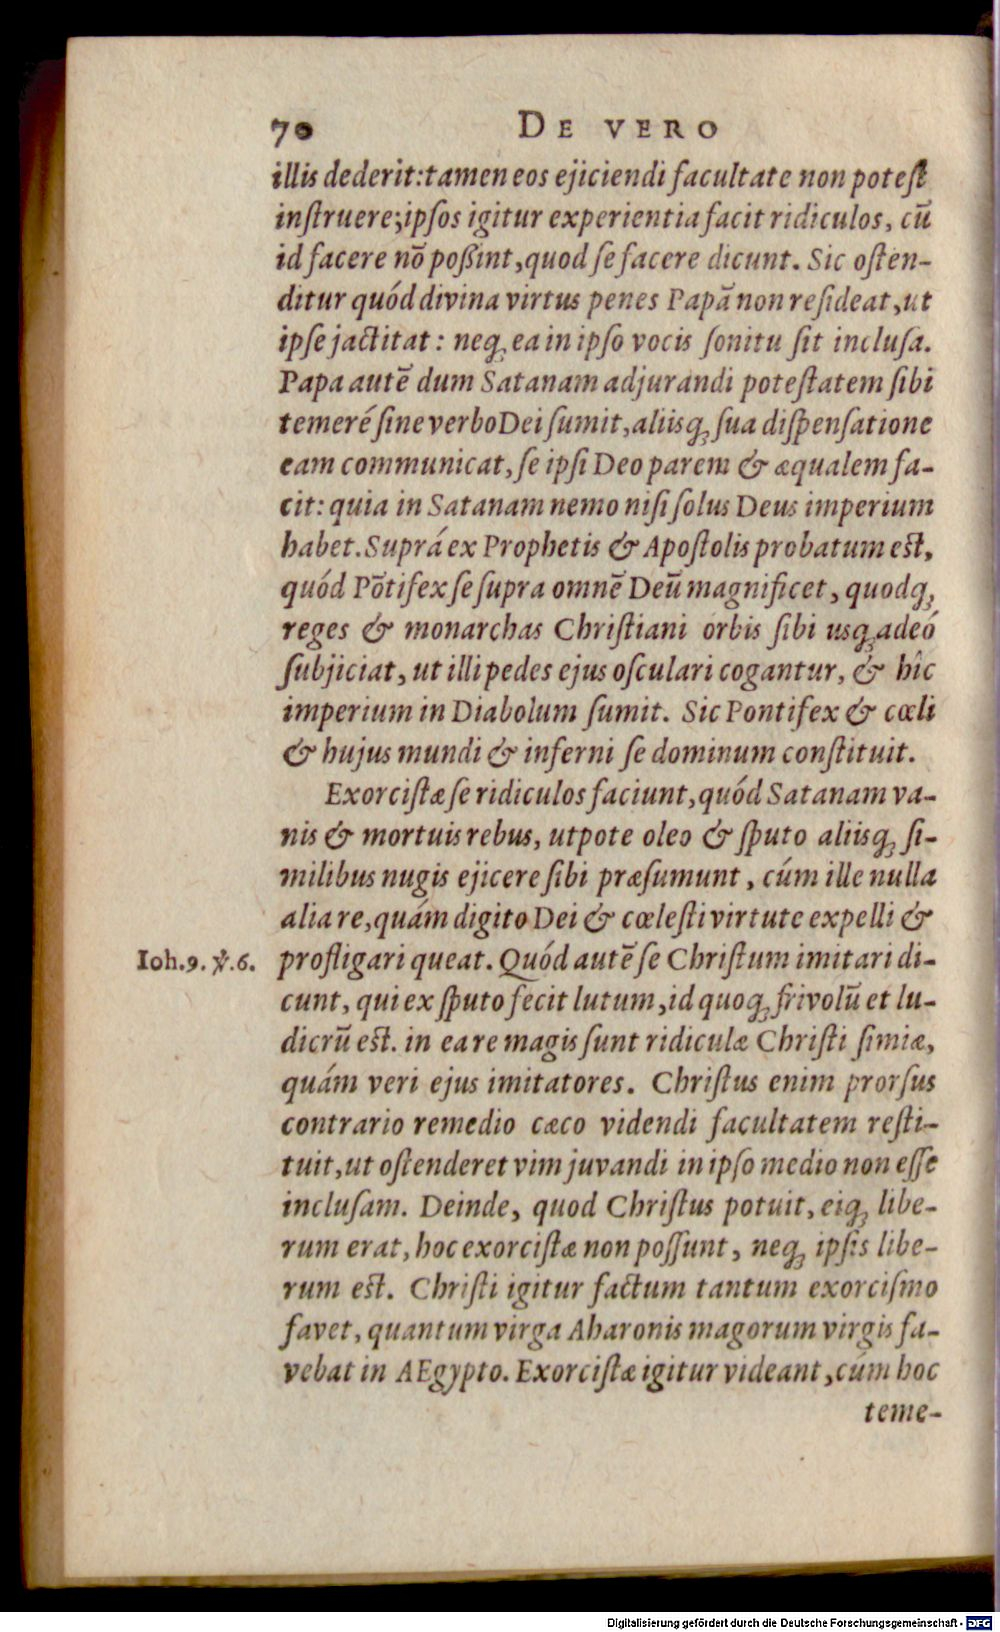 70 DE VERO
illis dederit: tamen eos ejiciendi facultate non poteſt
inſtruere; ipſos igitur experientia facit ridiculos, cũ
id facere nõ poßint, quod ſe facere dicunt. Sic oſten-
ditur quód divina virtus penes Papã non reſideat, ut
ipſe jactitat: neq; ea in ipſo vocis ſonitu ſit incluſa.
Papa autẽ dum Satanam adjurandi poteſtatem ſibi
temeré ſine verbo Dei ſumit, aliisq; ſua diſpenſatione
eam communicat, ſe ipſi Deo parem & æqualem fa-
cit: quia in Satanam nemo niſi ſolus Deus imperium
habet. Suprá ex Prophetis & Apoſtolis probatum eſt,
quód Põtifex ſe ſupra omnẽ Deũ magnificet, quodq;
reges & monarchas Chriſtiani orbis ſibi usq; adeó
ſubjiciat, ut illi pedes ejus oſculari cogantur, & hîc
imperium in Diabolum ſumit. Sic Pontifex & cœli
& hujus mundi & inferni ſe dominum conſtituit.
Exorciſtæ ſe ridiculos faciunt, quód Satanam va-
nis & mortuis rebus, utpote oleo & ſputo aliisq; ſi-
milibus nugis ejicere ſibi præſumunt, cúm ille nulla
alia re, quám digito Dei & cœleſti virtute expelli &
Ioh. 9. ℣. 6. profligari queat. Quód autẽ ſe Chriſtum imitari di-
cunt, qui ex ſputo fecit lutum, id quoq; frivolũ et lu-
dicrũ eſt. in ea re magis ſunt ridiculæ Chriſti ſimiæ,
quám veri ejus imitatores. Chriſtus enim prorſus
contrario remedio cæco videndi facultatem reſti-
tuit, ut oſtenderet vim juvandi in ipſo medio non eſſe
incluſam. Deinde, quod Chriſtus potuit, eiq; libe-
rum erat, hoc exorciſtæ non poſſunt, neq; ipſis libe-
rum eſt. Chriſti igitur factum tantum exorciſmo
favet, quantum virga Aharonis magorum virgis fa-
vebat in AEgypto. Exorciſtæ igitur videant, cúm hoc
teme-
Digitalisierung gefördert durch die Deutsche Forschungsgemeinschaft - DFG